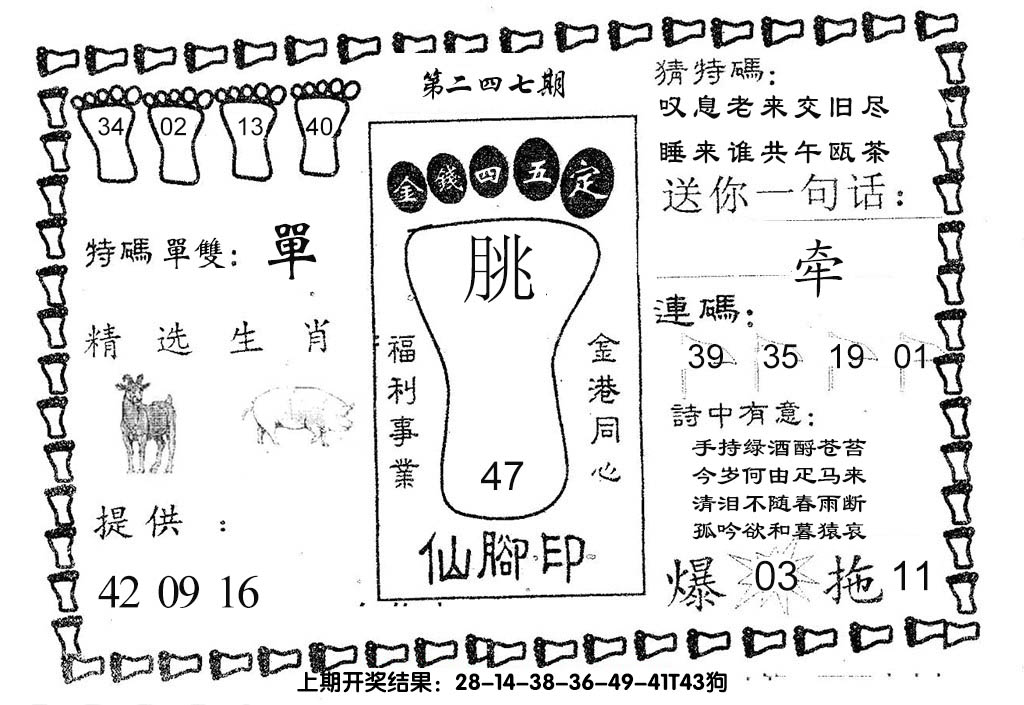 第二四七期
34 02 13 40
特碼單雙：單
精选生肖
提供：
42 09 16
金錢四五定
朓
47
福利事業
金港同心
仙腳印
猜特碼：
叹息老来交旧尽
睡来谁共午瓯茶
送你一句话：
牵
連碼：
39 35 19 01
詩中有意：
手持绿酒酹苍苔
今岁何由疋马来
清泪不随春雨断
孤吟欲和暮猿哀
爆 03 拖 11
上期开奖结果：28-14-38-36-49-41T43狗